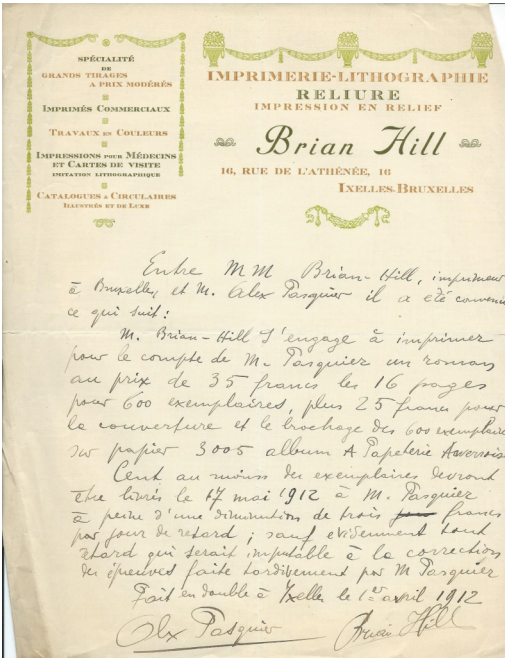 SPÉCIALITÉ
DE
GRANDS TIRAGES
A PRIX MODÉRÉS
IMPRIMÉS COMMERCIAUX
TRAVAUX EN COULEURS
IMPRESSIONS POUR MÉDECINS
ET CARTES DE VISITE
IMITATION LITHOGRAPHIQUE
CATALOGUES & CIRCULAIRES
ILLUSTRÉS ET DE LUXE
IMPRIMERIE-LITHOGRAPHIE
RELIURE
IMPRESSION EN RELIEF
Brian Hill
16, RUE DE L'ATHÉNÉE, 16
IXELLES-BRUXELLES
Entre MM Brian-Hill, imprimeur
à Bruxelles, et M. Alex Pasquier il a été convenu
ce qui suit :
M. Brian-Hill s'engage à imprimer
pour le compte de M. Pasquier un roman
au prix de 35 francs les 16 pages
pour 600 exemplaires, plus 25 francs pour
la couverture et le brochage des 600 exemplaires
sur papier 3005 album A Papeterie
Cent au moins des exemplaires devront
être livrés le 17 mai 1912 à M. Pasquier
à peine d'une diminution de trois francs
par jour de retard ; sauf évidemment tout
retard qui serait imputable à la correction
des épreuves faite tardivement par M Pasquier
Fait en double à Ixelles le 1er avril 1912
Alex Pasquier Brian Hill